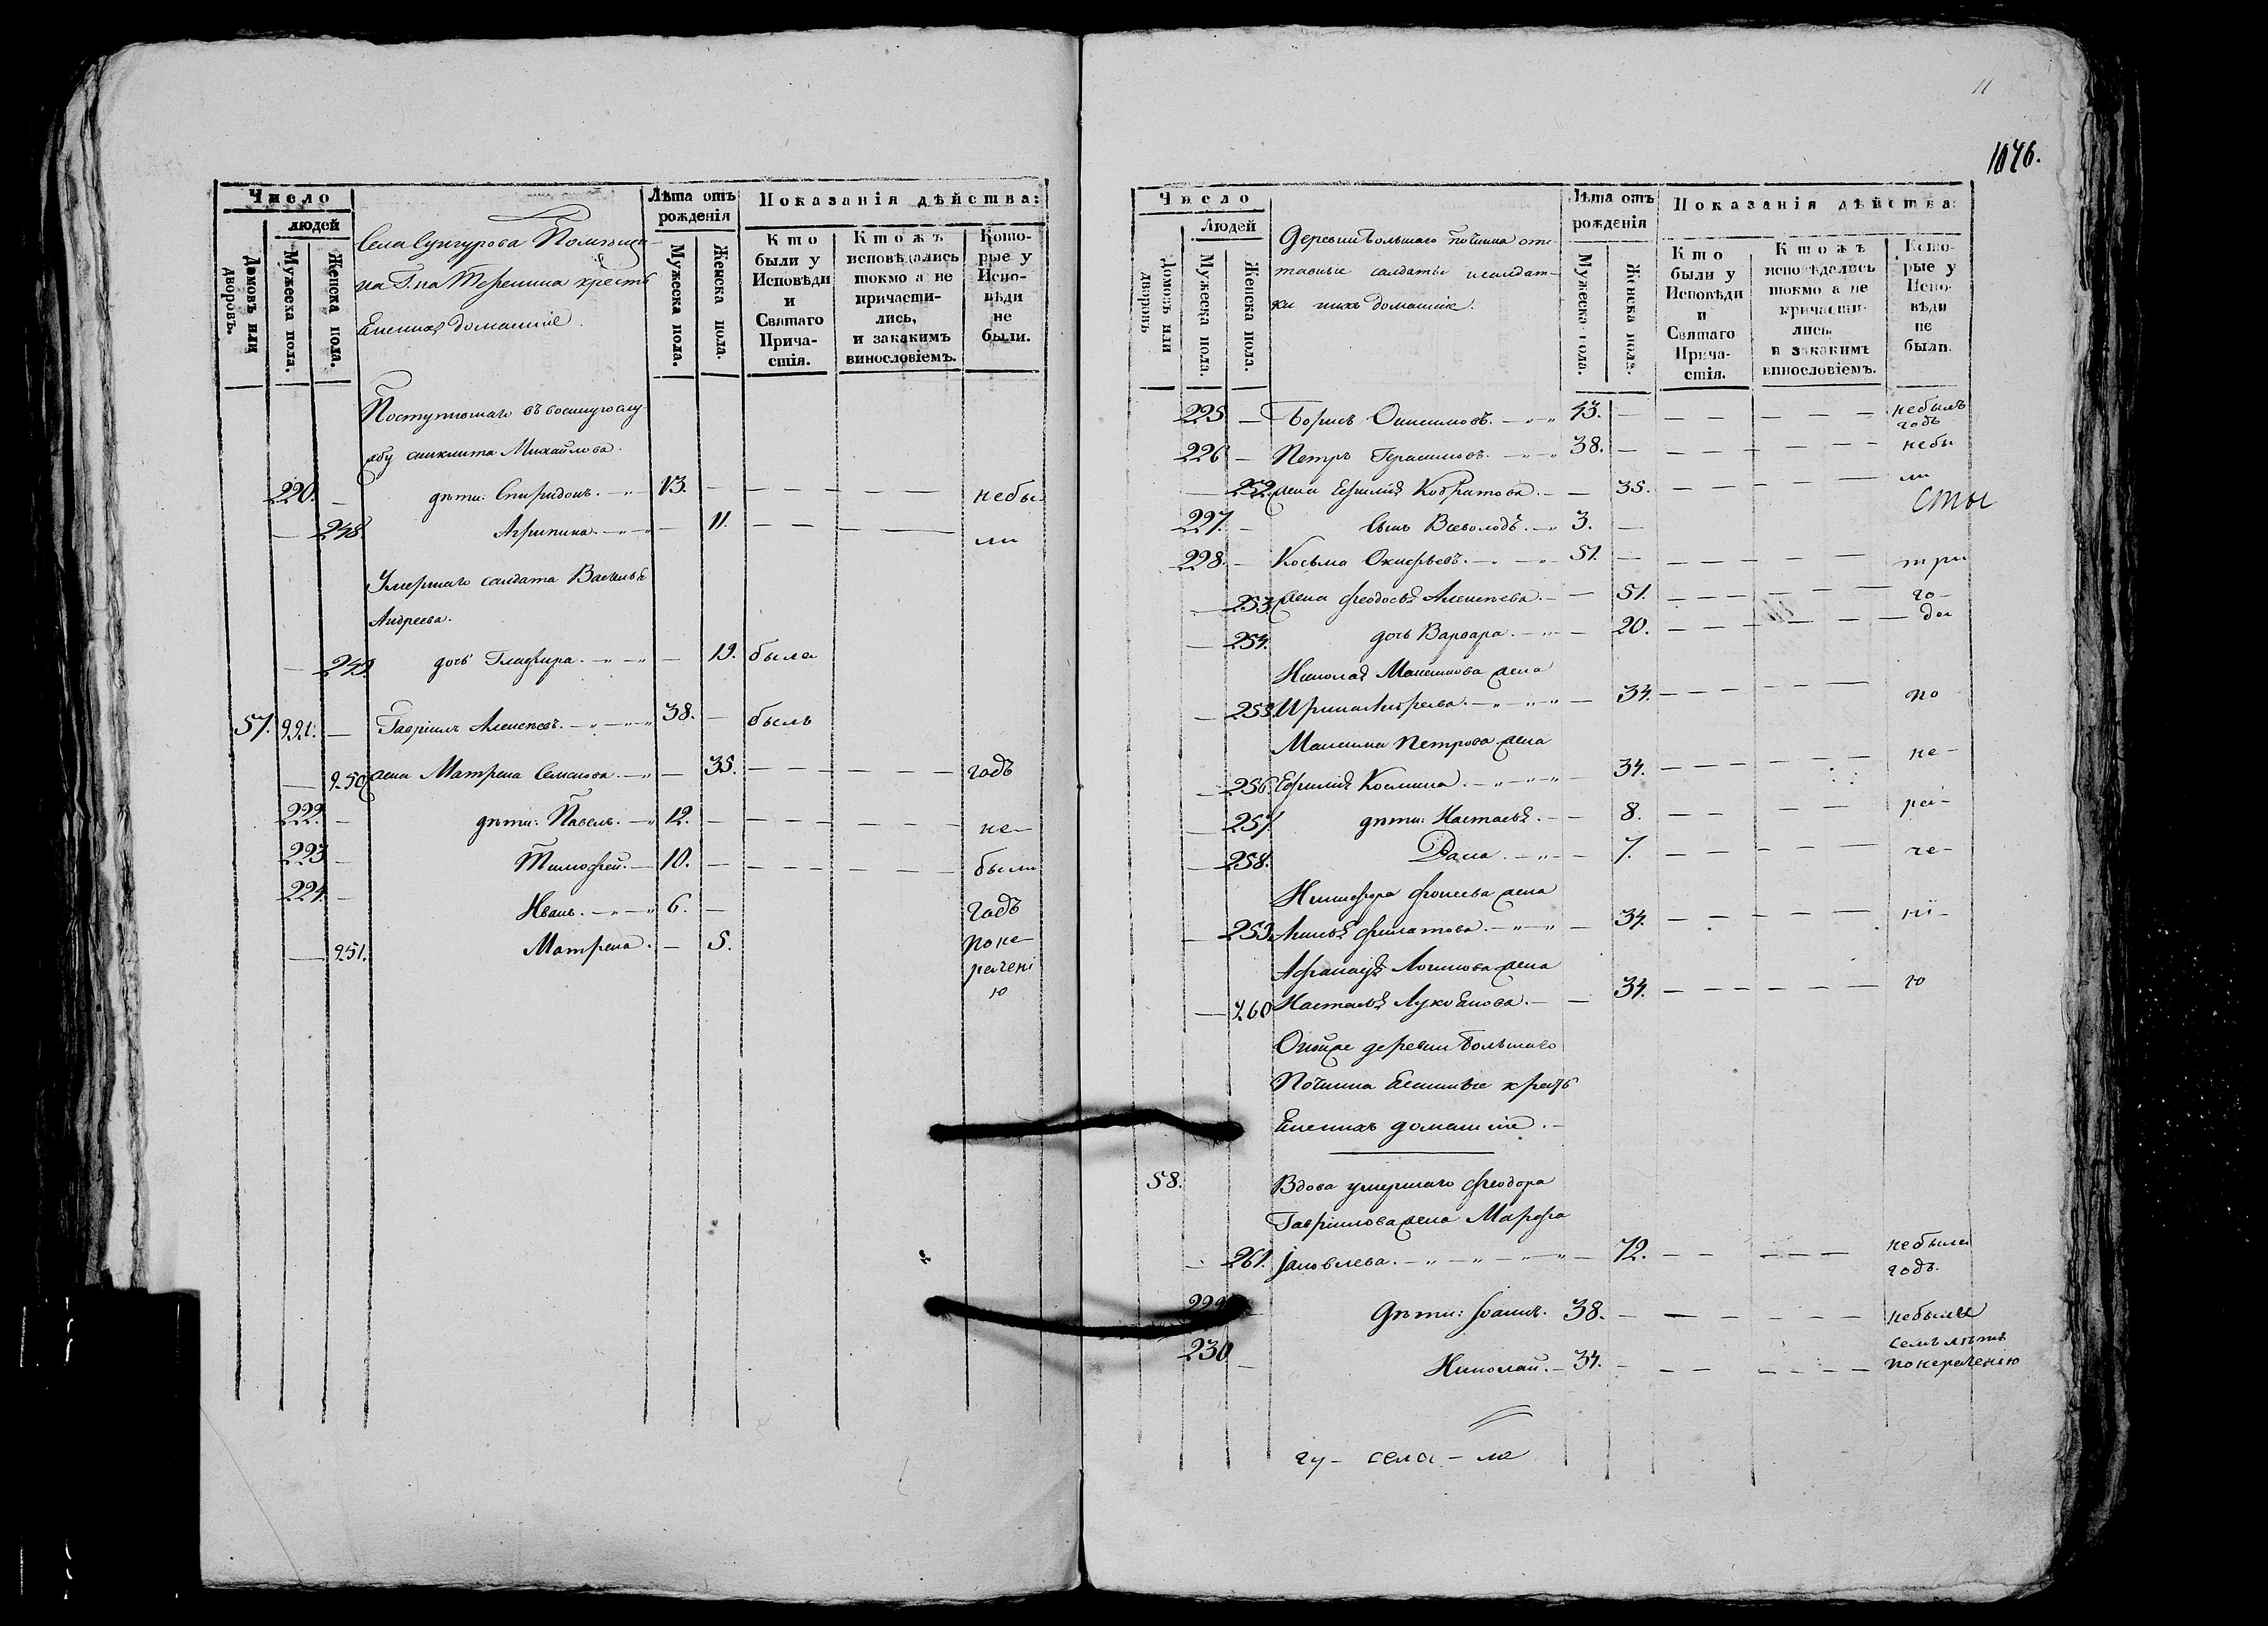 Число
людей
Домовъ или дворовъ.
Мужеска пола.
Женска пола.
Села Сунгурова Помѣщи-
ка Г.на Теренина кресть
яне ихъ домашніе
Лѣта отъ рожденія
Мужеска пола.
Женска пола.
Показанія дѣйства:
Кто были у Исповѣди и Святаго Причастія.
Ктожъ исповѣдались токмо а не причастились, и закакимъ винословіемъ.
Которые у Исповѣди не были.
Поступившаго въ военную слу
жбу Михайлова.
220. — дѣти: Спиридонъ. — 13. — небы
— 248 Агрипина. — 11. — ли
Умершаго салдата Василья
Андреева.
— 249. дочь Глафира. — 19. была
57. 221. — Гавріилъ Алексѣевъ. — 38. — былъ
— 250 жена Матрена Семенова. — 35. — годъ
222. — дѣти: Павелъ. — 12. — не—
223 — Тимофей. — 10. — были
224. — Иванъ. — 6. — годъ
— 251. Матрена. — 5. поне—
рачені
ю
11
1046.
Число
Людей
Домовъ или дворовъ
Мужеска пола.
Женска пола.
Деревни Большаго Починка отс
тавные салдаты исалдат-
ки ихъ домашніе.
Лѣта отъ рожденія
Мужеска пола.
Женска пола.
Показанія дѣйства:
Кто были у Исповѣди и Святаго Причастія.
Ктожъ исповѣдались токмо а не причастились, и закакимъ винословіемъ.
Которые у Исповѣди не были.
225 — Борисъ Онисимовъ. — 43. — небылъ
годъ
226 — Петръ Герасимовъ. — 38. — небы
— 252. жена Ефимія — 35. — ли
сты
227. — сынъ Всеволодъ. — 3. —
228. — Косьма — 51. — три
— 253. жена Феодосья Алексѣева. — 51. — го—
— 254. дочь Варвара. — 20. — да
Николая Максимова жена
— 255. Ирина Андреева. — 34. — по
Максима Петрова жена
— 256. Ефимія Космина. — 34. — не—
— 257. дѣти: Настасья. — 8. — ра—
— 258. Дарья. — 7. — че—
Никифора Фокеева жена
— 259. Филатова. — 34. — ні—
Афанасья Логинова жена
— 260 Настасья Лукоянова. — 34. — ю
Онойже деревни Большаго
Починка кресть
яне ихъ домашніе. —
58. Вдова умершаго Феодора
Гавріилова жена Марфа
— 261. Іаковлева. — 72. — небыла
годъ.
229 — Дѣти: Іоаннъ. 38. — небылы
семъ лѣтъ
230 — Николай. — 34. — понерачению
гу — села — ле